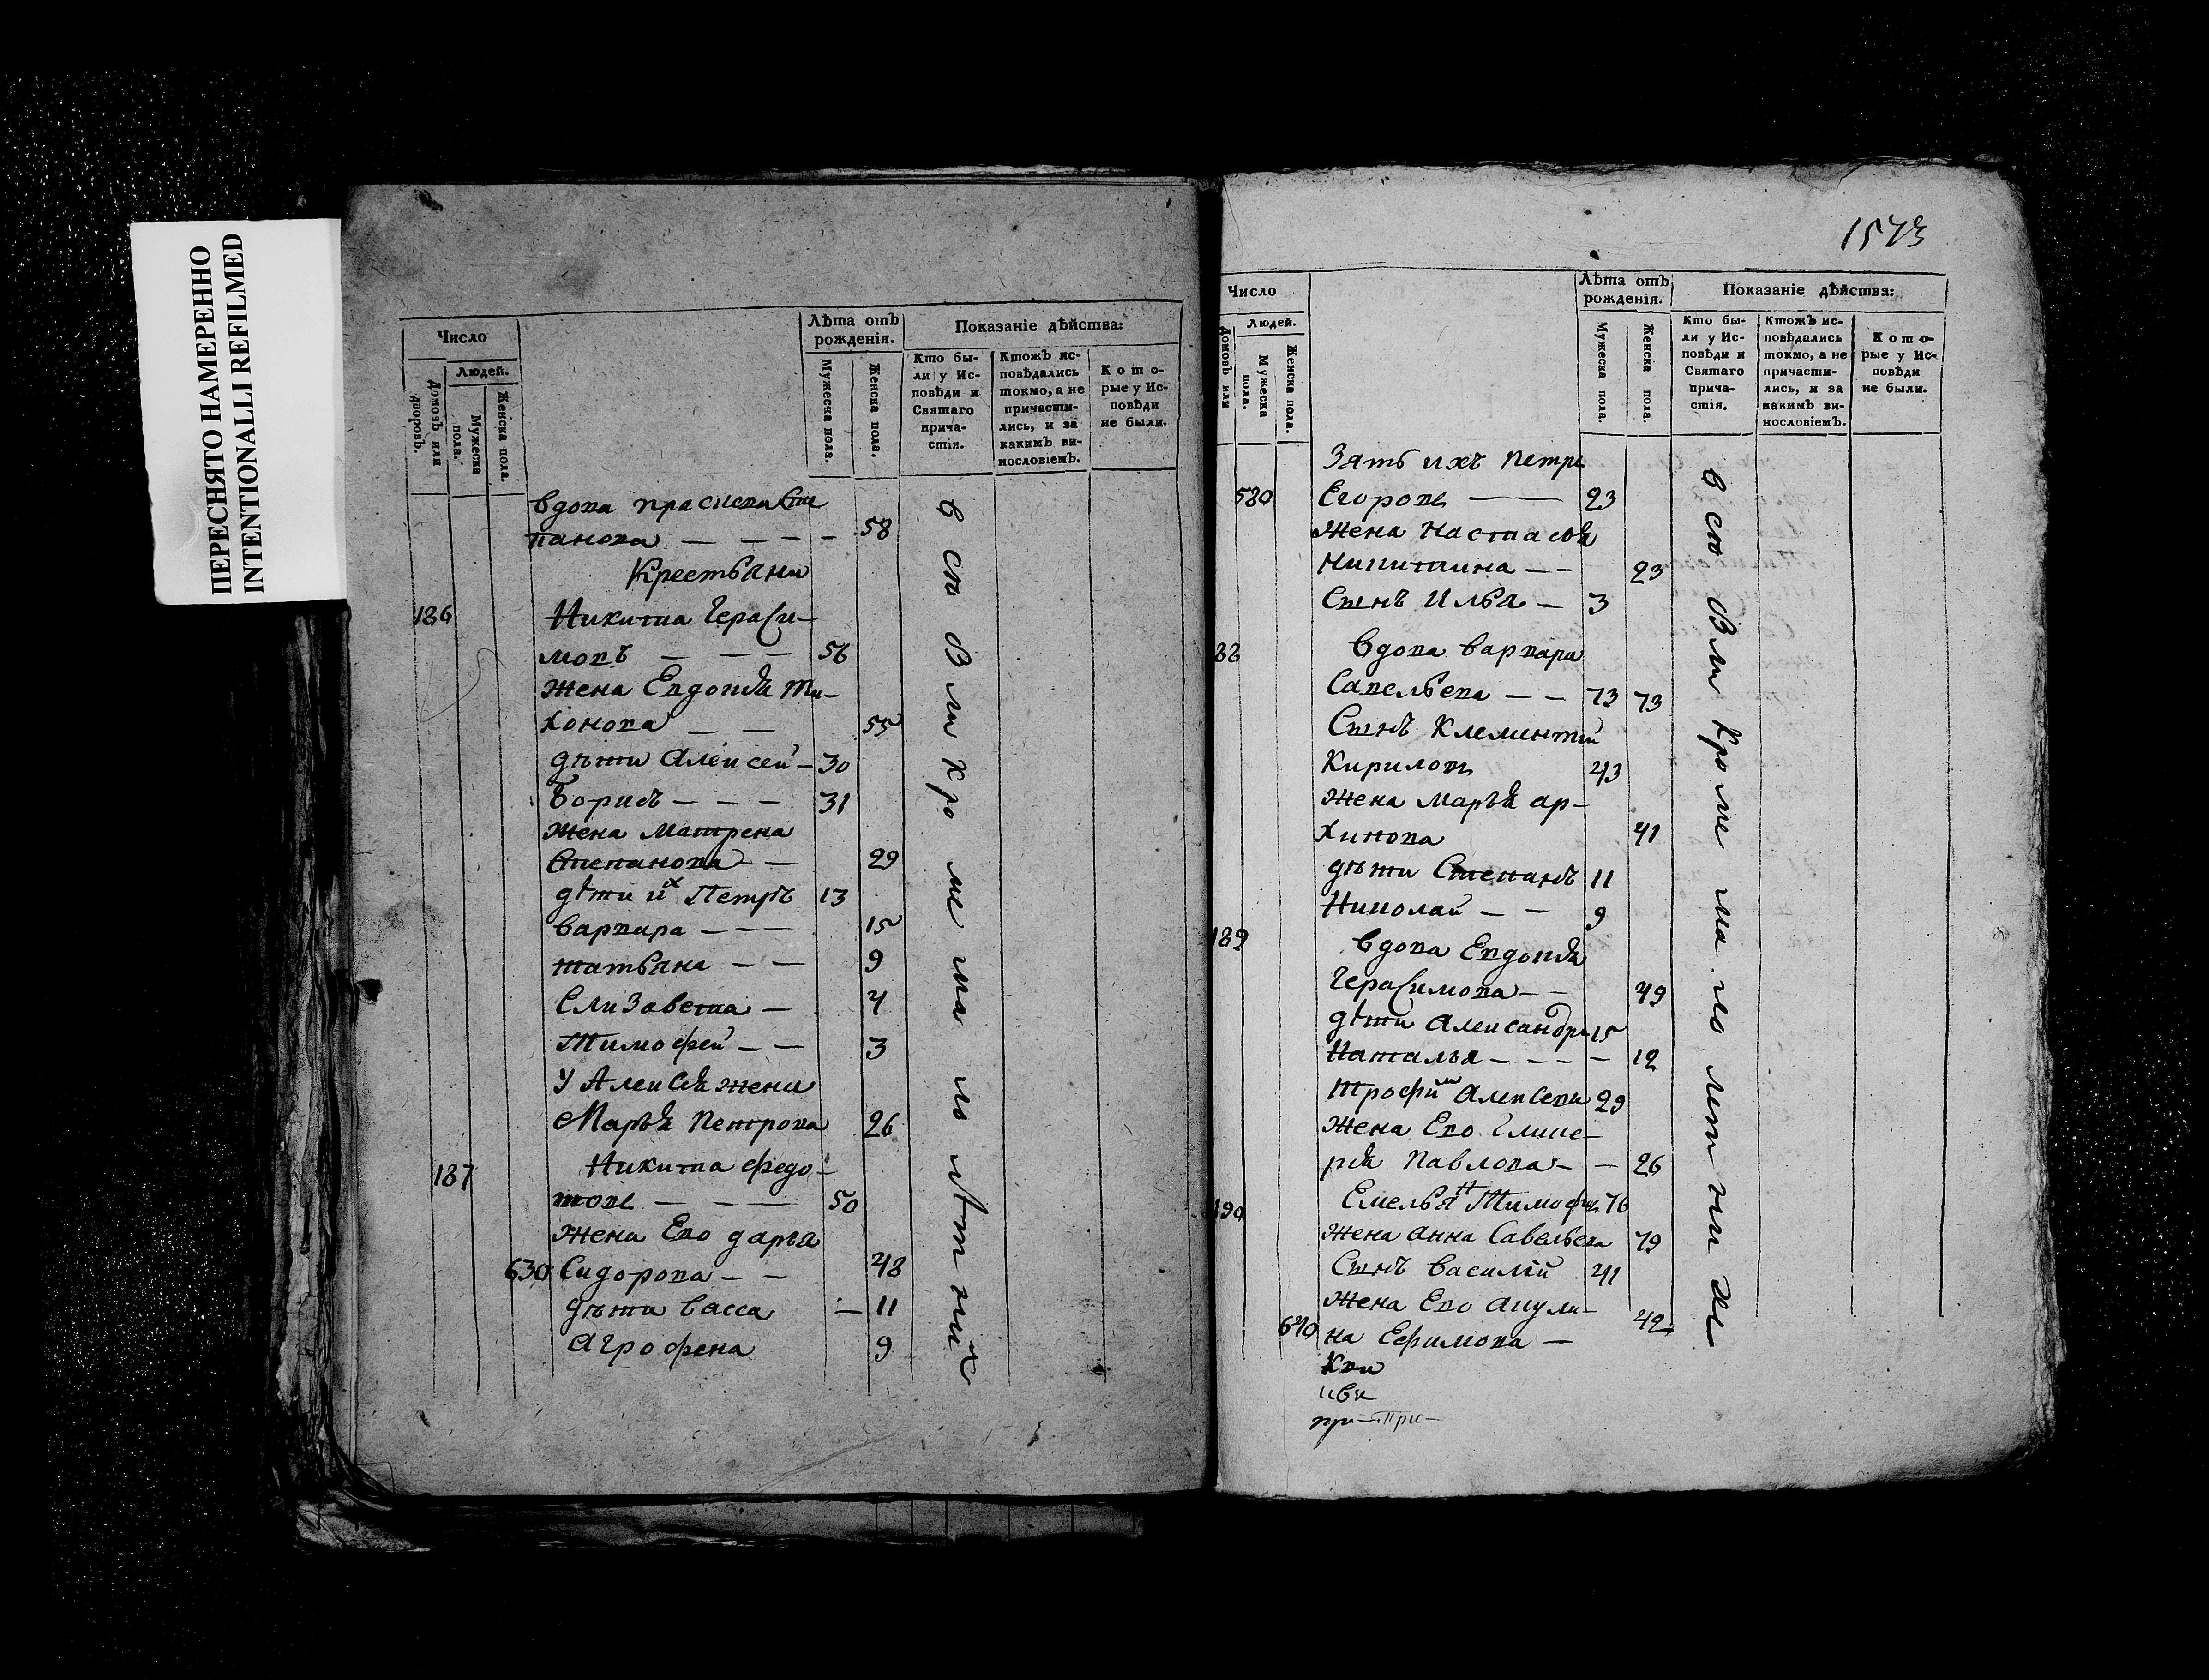 ПЕРЕСНЯТО НАМЕРЕННО
INTENTIONALLI REFILMED
Число
Людей.
Домовъ или дворовъ.
Мужеска пола.
Женска пола.
Лѣта отъ рожденія.
Мужеска пола.
Женска пола.
Показаніе дѣйства:
Кто были у Исповѣди и Святаго причастія.
Ктожъ исповѣдались токмо, а не причастились, и за какимъ винословіемъ.
Которые у Исповѣди не были.
вдова праскева Сте
панова — — — — 58
Крестьяни
186 Никита Гераси-
мовъ — — — 56
жена Евдокія Ти-
хонова — — 55
дѣти Алексей — 30
Борисъ — — — 31
жена Матрена
Степанова — — 29
дѣти их Петръ 13
варвара — — — 15
татьяна — — 9
Елизавета — 4
Тимофей — — 3
у Алексѣя жена
Марья Петрова 26
187 Никита Федо-
товъ — — — 50
жена Ево дарья
630 Сидорова — — 48
дѣти васса — 11
Агрофена 9
всю Вли кроме малолѣтних
1573
Число
Людей.
Домовъ или
Мужеска пола.
Женска пола.
Лѣта отъ рожденія.
Мужеска пола.
Женска пола.
Показаніе дѣйства:
Кто были у Исповѣди и Святаго причастія.
Ктожъ исповѣдались токмо, а не причастились, и за какимъ винословіемъ.
Которые у Исповѣди не были.
Зять ихъ Петръ
580 Егоровъ — — 23
жена Настасья
Никитина — — 23
Сынъ Илья — 3
88 вдова варвара
Савельева — — 73 73
Сынъ Клементій
Кириловъ 43
жена Марья ар-
хипова 41
дѣти Степанъ 11
Николай — — 9
189 вдова Евдокія
Герасимова — — 49
дѣти Александръ 15
Наталья — — — — 12
Трофим Алексеев 29
жена Ево Глике-
рія Павлова — — 26
190 Емельян Тимофеев 76
жена анна Савельева 79
Сынъ василій 41
жена Ево акули-
640 на Ефимова — 42
при — При —
всю Вли Кроме малолетних